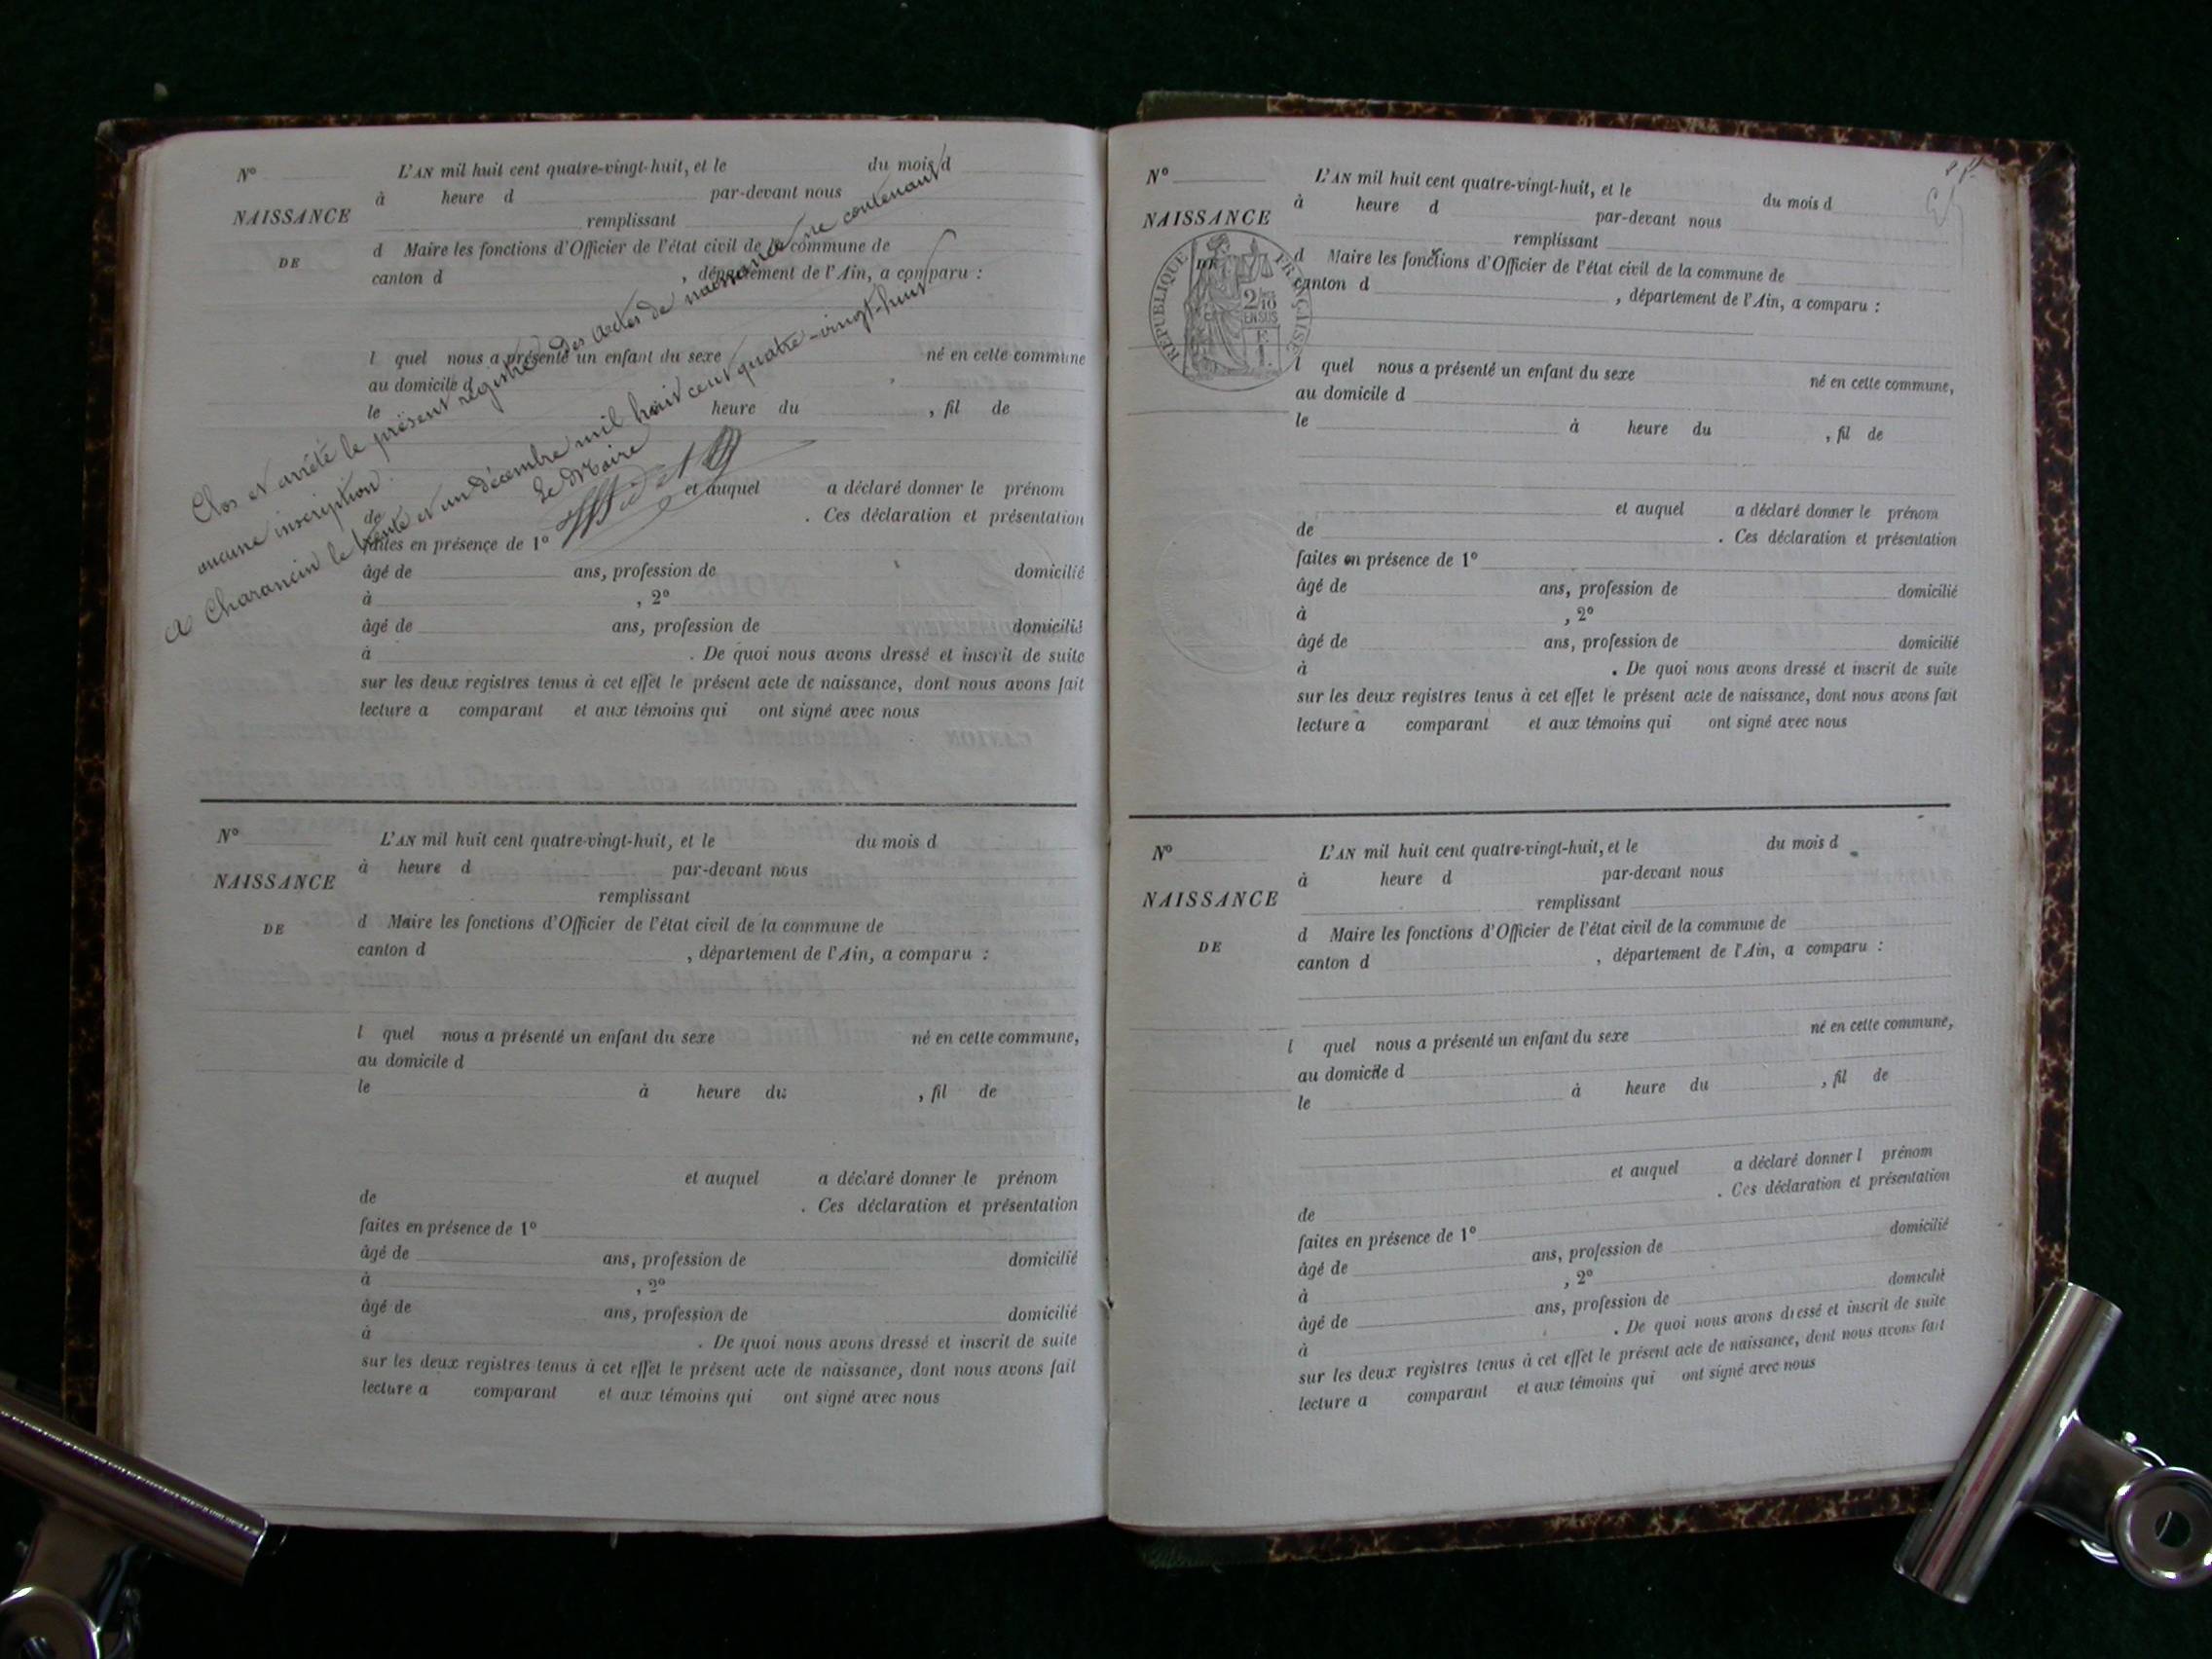 N° L'AN mil huit cent quatre-vingt-huit, et le du mois d
à heure d par-devant nous
NAISSANCE remplissant
DE d Maire les fonctions d'Officier de l'état civil de la commune de
canton d , département de l'Ain, a comparu :
l quel nous a présenté un enfant du sexe né en cette commune
au domicile d
le heure du , fil de
et auquel a déclaré donner le prénom
de . Ces déclaration et présentation
faites en présence de 1°
âgé de ans, profession de domicilié
à , 2°
âgé de ans, profession de domicilié
à . De quoi nous avons dressé et inscrit de suite
sur les deux registres tenus à cet effet le présent acte de naissance, dont nous avons fait
lecture a comparant et aux témoins qui ont signé avec nous
Clos et arrêté le présent registre des actes de naissance ne contenant
aucune inscription.
A Charancin le trente et un décembre mil huit cent quatre-vingt-huit
Le Maire
N° L'AN mil huit cent quatre-vingt-huit, et le du mois d
à heure d par-devant nous
NAISSANCE remplissant
DE d Maire les fonctions d'Officier de l'état civil de la commune de
canton d , département de l'Ain, a comparu :
l quel nous a présenté un enfant du sexe né en cette commune,
au domicile d
le à heure du , fil de
et auquel a déclaré donner le prénom
de . Ces déclaration et présentation
faites en présence de 1°
âgé de ans, profession de domicilié
à , 2°
âgé de ans, profession de domicilié
à . De quoi nous avons dressé et inscrit de suite
sur les deux registres tenus à cet effet le présent acte de naissance, dont nous avons fait
lecture a comparant et aux témoins qui ont signé avec nous
N° L'AN mil huit cent quatre-vingt-huit, et le du mois d
à heure d par-devant nous
NAISSANCE remplissant
DE d Maire les fonctions d'Officier de l'état civil de la commune de
canton d , département de l'Ain, a comparu :
RÉPUBLIQUE FRANÇAISE
2/10
EN SUS
l quel nous a présenté un enfant du sexe né en cette commune,
au domicile d
le à heure du , fil de
et auquel a déclaré donner le prénom
de . Ces déclaration et présentation
faites en présence de 1°
âgé de ans, profession de domicilié
à , 2°
âgé de ans, profession de domicilié
à . De quoi nous avons dressé et inscrit de suite
sur les deux registres tenus à cet effet le présent acte de naissance, dont nous avons fait
lecture a comparant et aux témoins qui ont signé avec nous
N° L'AN mil huit cent quatre-vingt-huit, et le du mois d
à heure d par-devant nous
NAISSANCE remplissant
DE d Maire les fonctions d'Officier de l'état civil de la commune de
canton d , département de l'Ain, a comparu :
l quel nous a présenté un enfant du sexe né en cette commune,
au domicile d
le à heure du , fil de
et auquel a déclaré donner l prénom
de . Ces déclaration et présentation
faites en présence de 1°
âgé de ans, profession de domicilié
à , 2°
âgé de ans, profession de domicilié
à . De quoi nous avons dressé et inscrit de suite
sur les deux registres tenus à cet effet le présent acte de naissance, dont nous avons fait
lecture a comparant et aux témoins qui ont signé avec nous